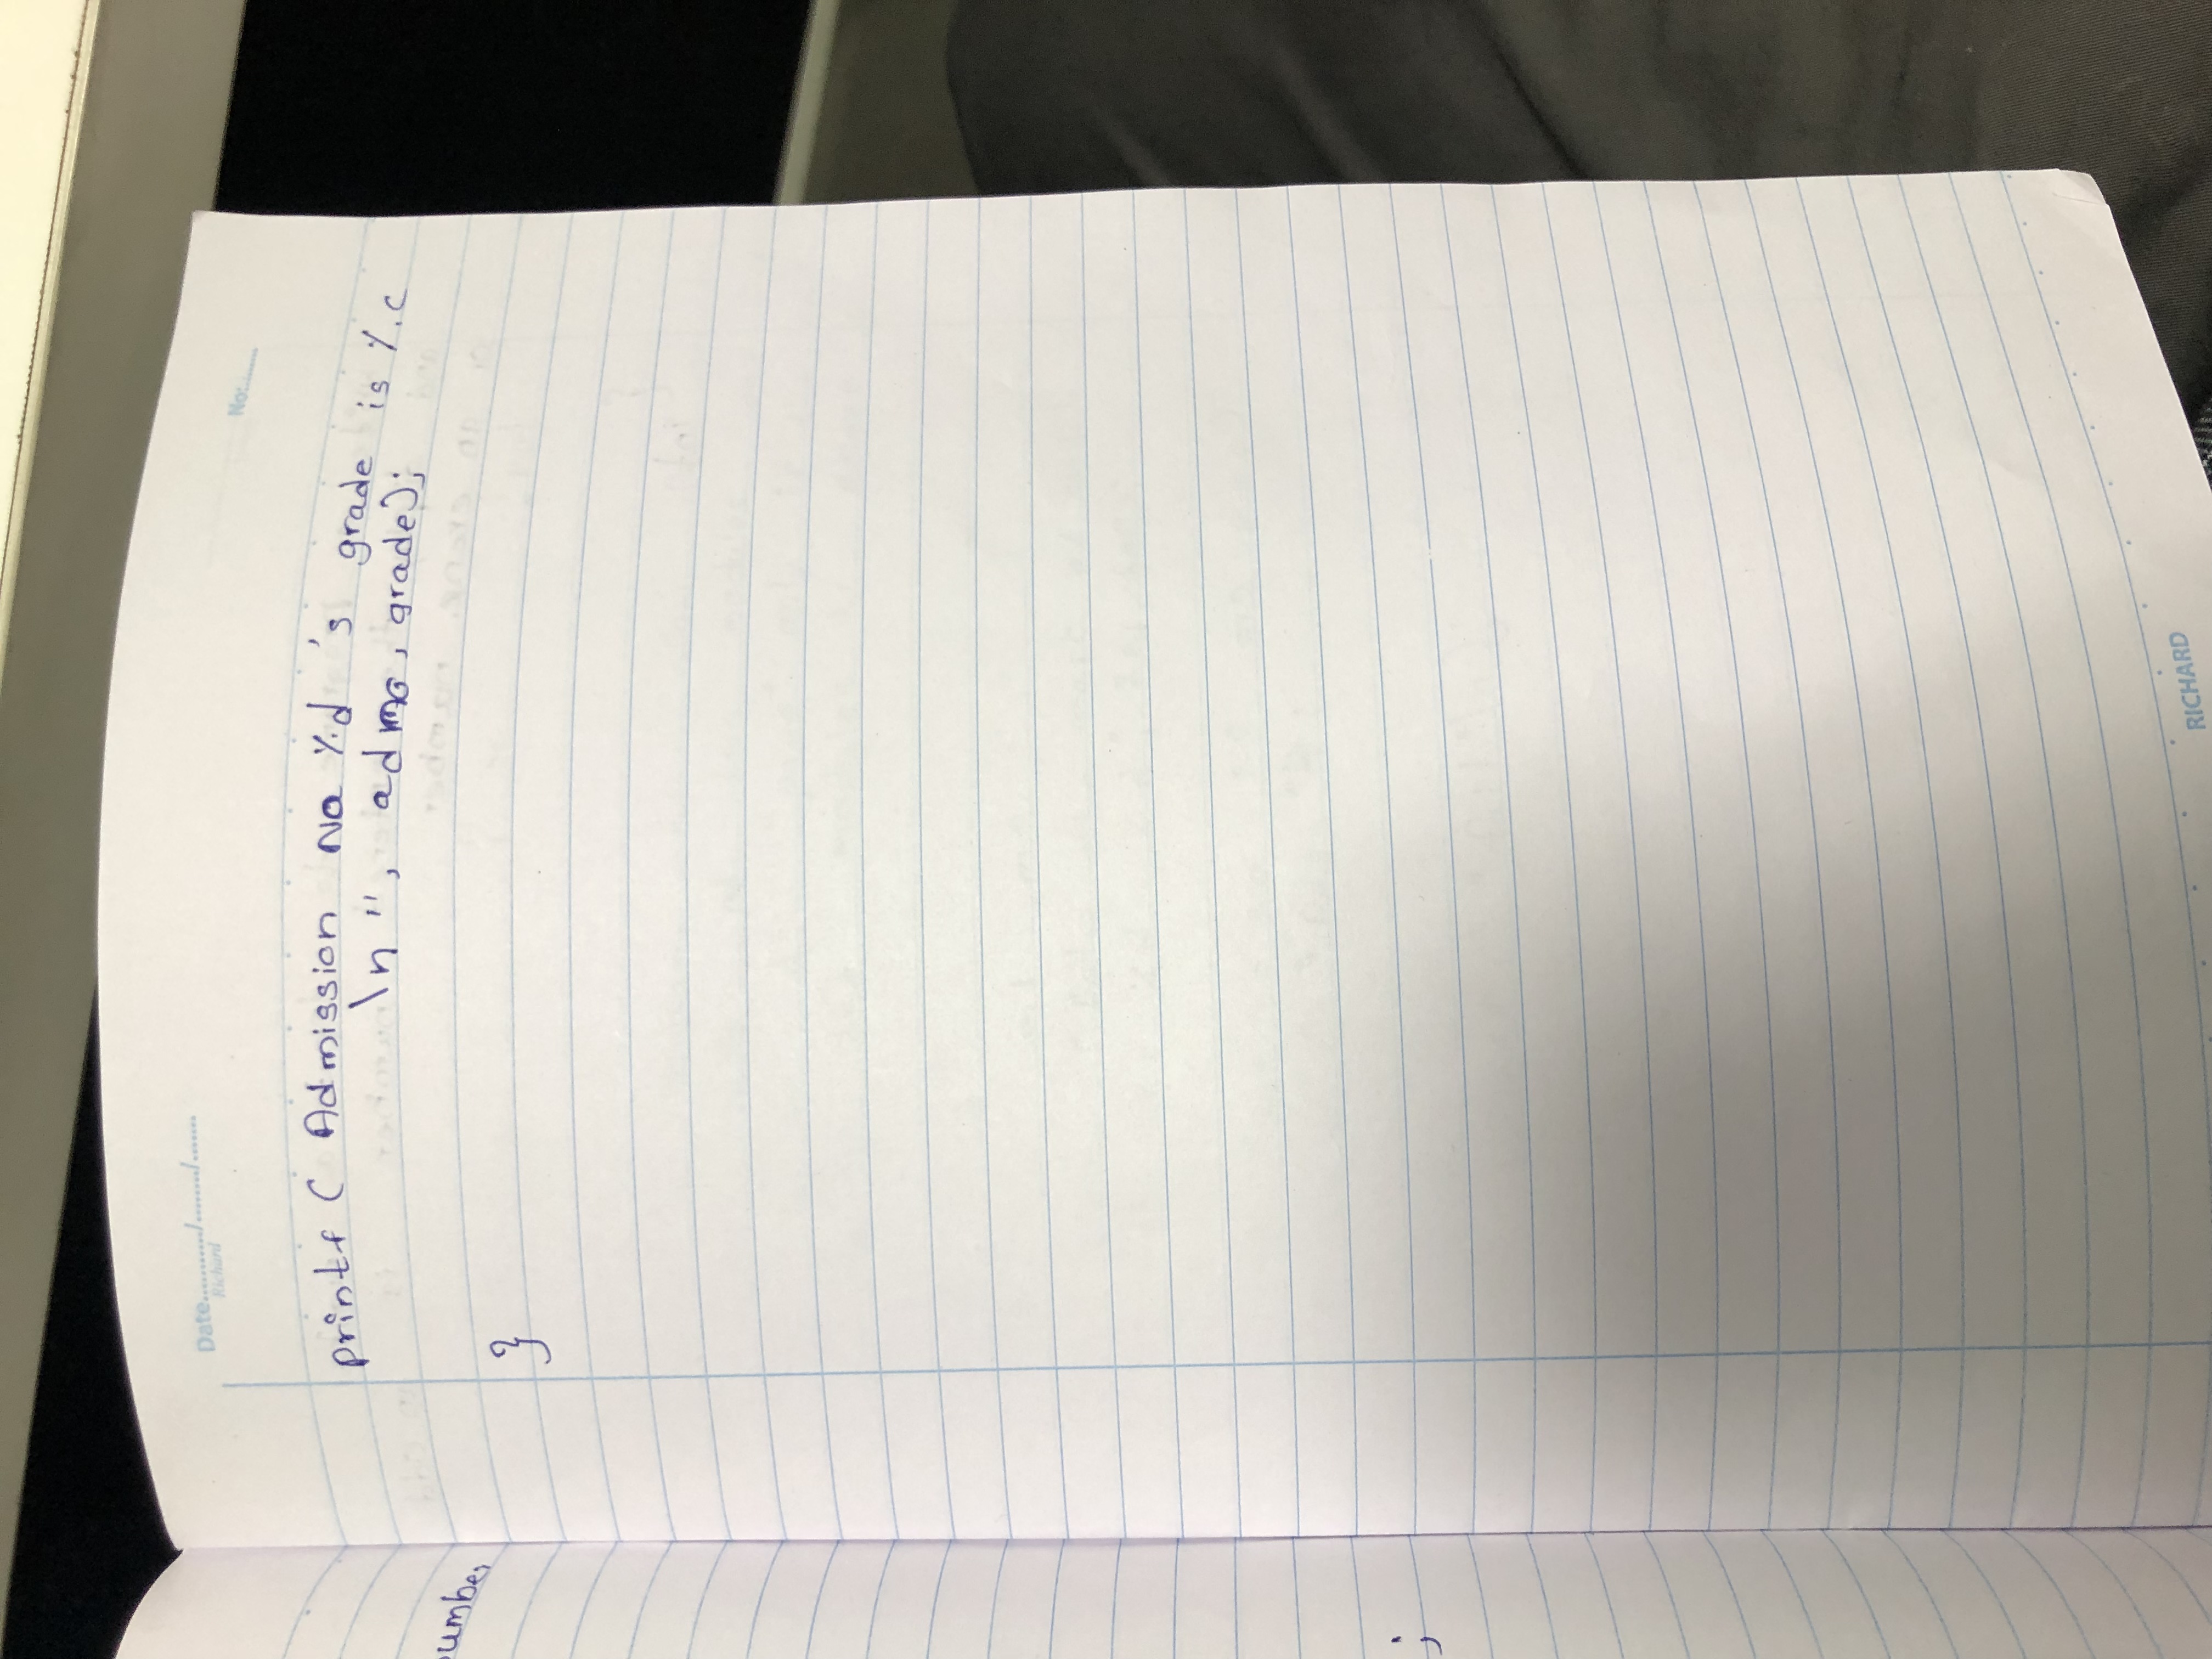 Date........../......../.......
Richard
No:.......
printf ( Admission No %d 's grade is %.c
\n ", admno, grade);
}
umber
;
RICHARD